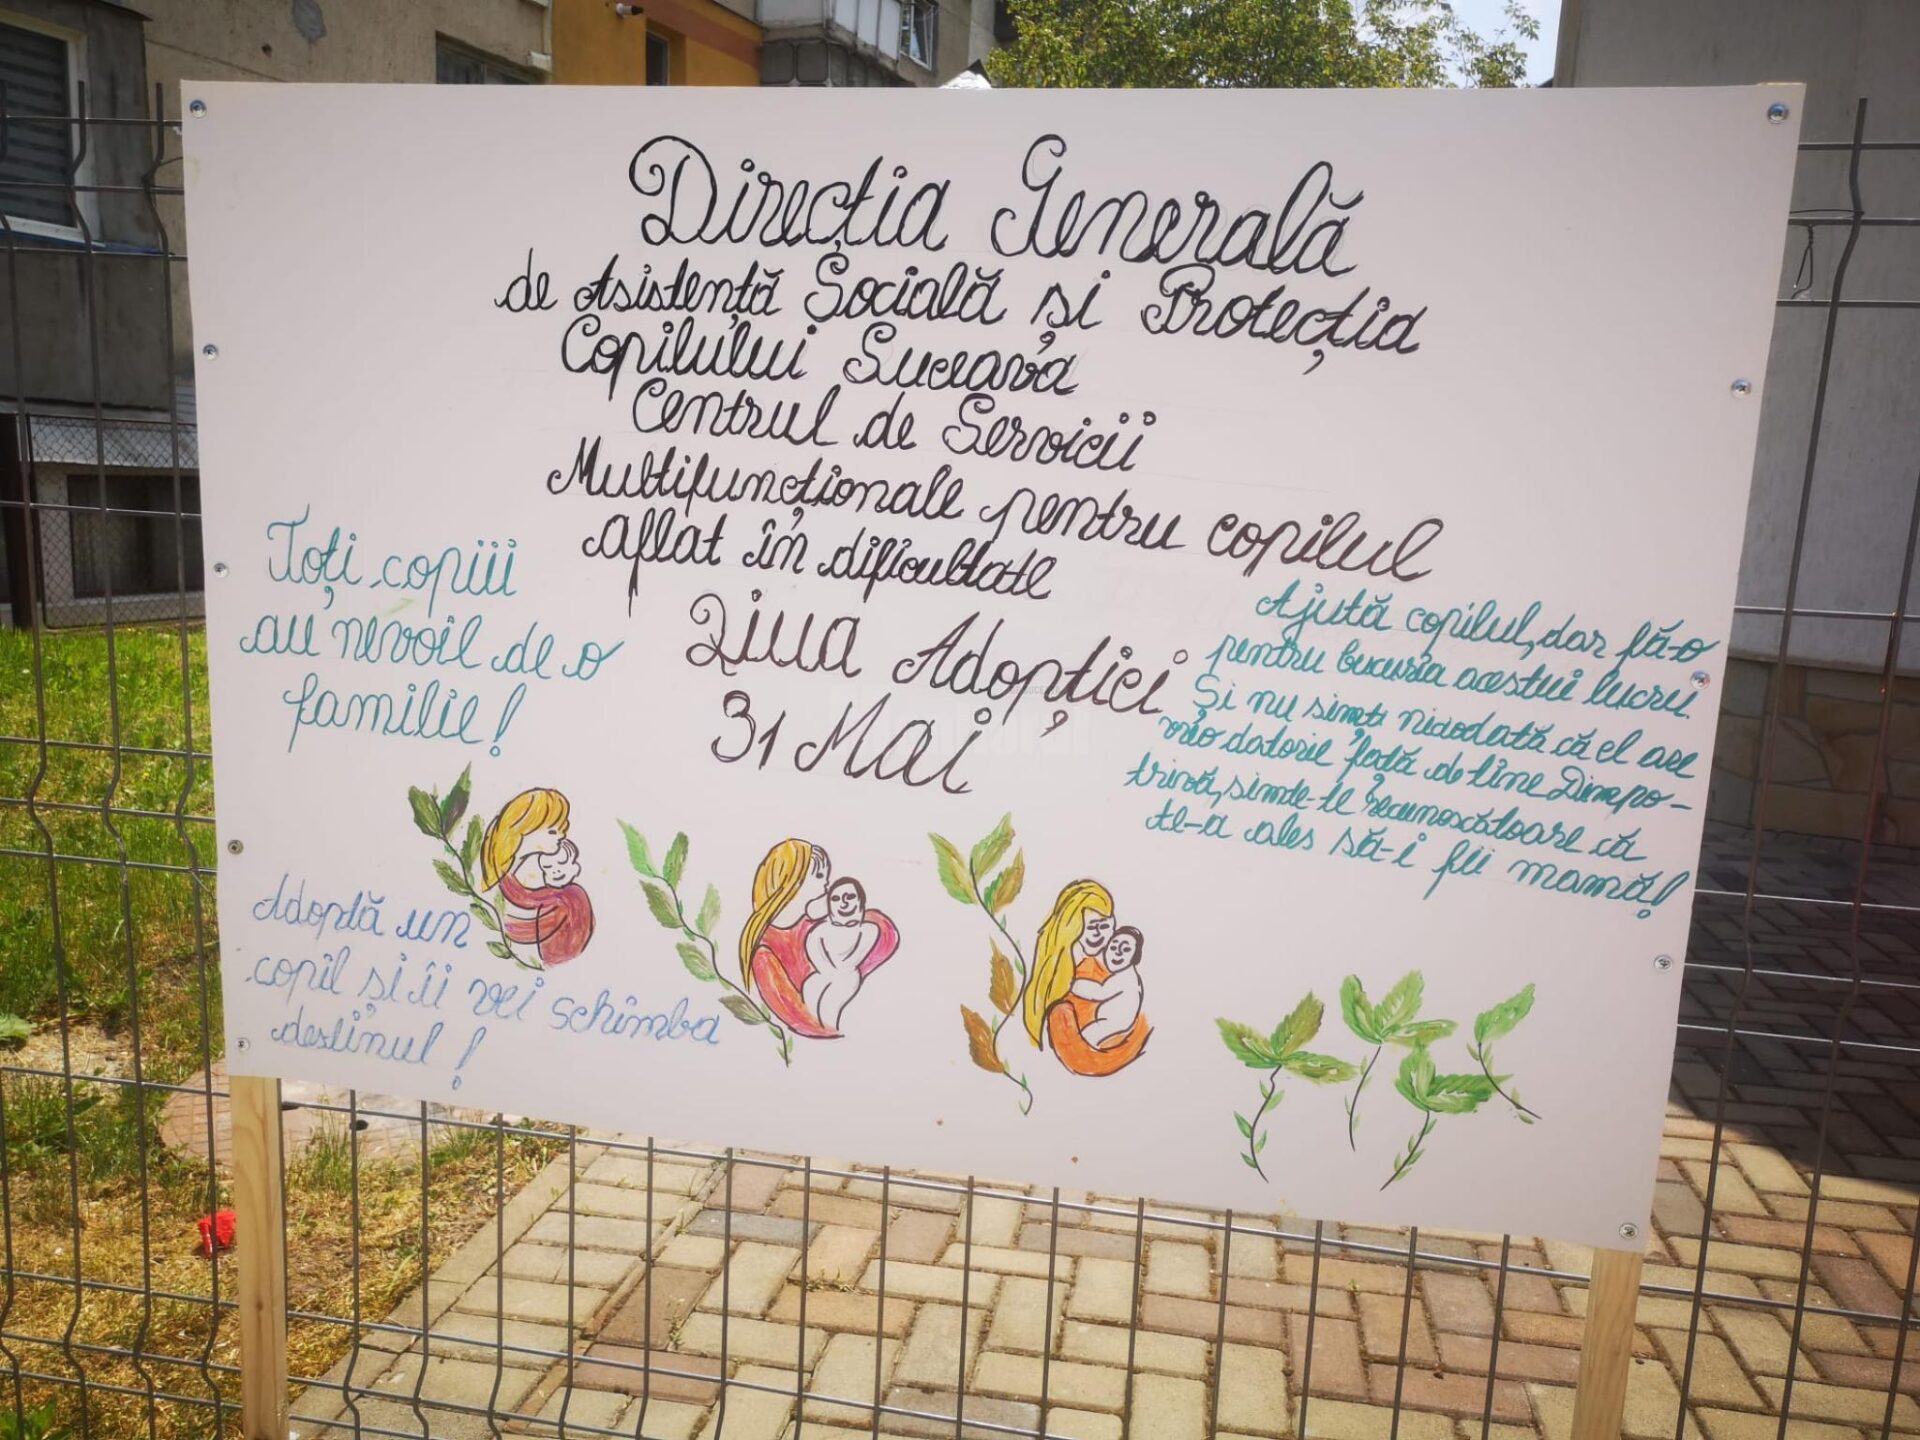 Direcția Generală
de Asistență Socială și Protecția
Copilului Suceava
Centrul de Servicii
Multifuncționale pentru copilul
aflat în dificultate
Ziua Adopției
31 Mai
Toți copiii
au nevoie de o
familie!
Ajută copilul, dar fă-o
pentru bucuria acestui lucru.
Și nu simți niciodată că el are
vreo datorie față de tine Dimpo-
trivă, simte-te recunoscătoare că
te-a ales să-i fii mamă!
Adoptă un
copil și îi vei schimba
destinul!